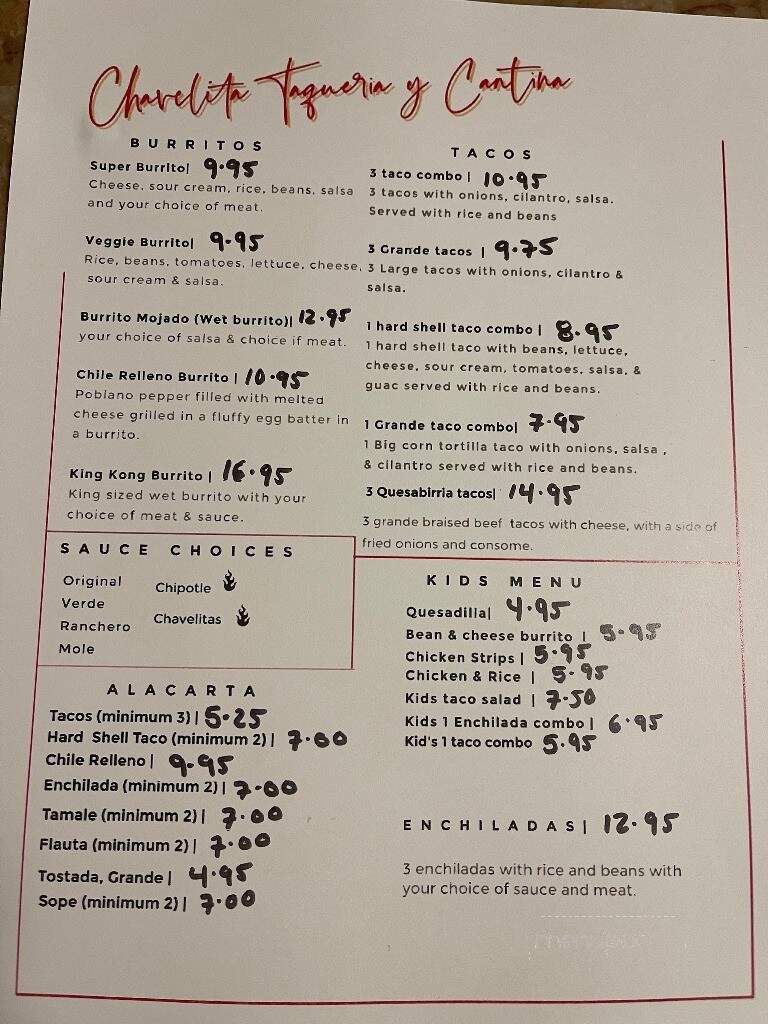 Chavelita Taqueria y Cantina
BURRITOS
Super Burrito| 9.95
Cheese, sour cream, rice, beans, salsa
and your choice of meat.
Veggie Burrito| 9.95
Rice, beans, tomatoes, lettuce, cheese,
sour cream & salsa.
Burrito Mojado (Wet burrito)| 12.95
your choice of salsa & choice if meat.
Chile Relleno Burrito | 10.95
Poblano pepper filled with melted
cheese grilled in a fluffy egg batter in
a burrito.
King Kong Burrito | 16.95
King sized wet burrito with your
choice of meat & sauce.
TACOS
3 taco combo | 10.95
3 tacos with onions, cilantro, salsa.
Served with rice and beans
3 Grande tacos | 9.75
3 Large tacos with onions, cilantro &
salsa.
1 hard shell taco combo | 8.95
1 hard shell taco with beans, lettuce,
cheese, sour cream, tomatoes, salsa, &
guac served with rice and beans.
1 Grande taco combo| 7.95
1 Big corn tortilla taco with onions, salsa ,
& cilantro served with rice and beans.
3 Quesabirria tacos| 14.95
3 grande braised beef tacos with cheese, with a side of
fried onions and consome.
SAUCE CHOICES
Original
Verde
Ranchero
Mole
Chipotle
Chavelitas
ALACARTA
Tacos (minimum 3) | 5.25
Hard Shell Taco (minimum 2) | 7.00
Chile Relleno | 9.95
Enchilada (minimum 2) | 7.00
Tamale (minimum 2) | 7.00
Flauta (minimum 2) | 7.00
Tostada, Grande | 4.95
Sope (minimum 2) | 7.00
KIDS MENU
Quesadilla| 4.95
Bean & cheese burrito | 5.95
Chicken Strips | 5.95
Chicken & Rice | 5.95
Kids taco salad | 7.50
Kids 1 Enchilada combo | 6.95
Kid's 1 taco combo 5.95
ENCHILADAS| 12.95
3 enchiladas with rice and beans with
your choice of sauce and meat.